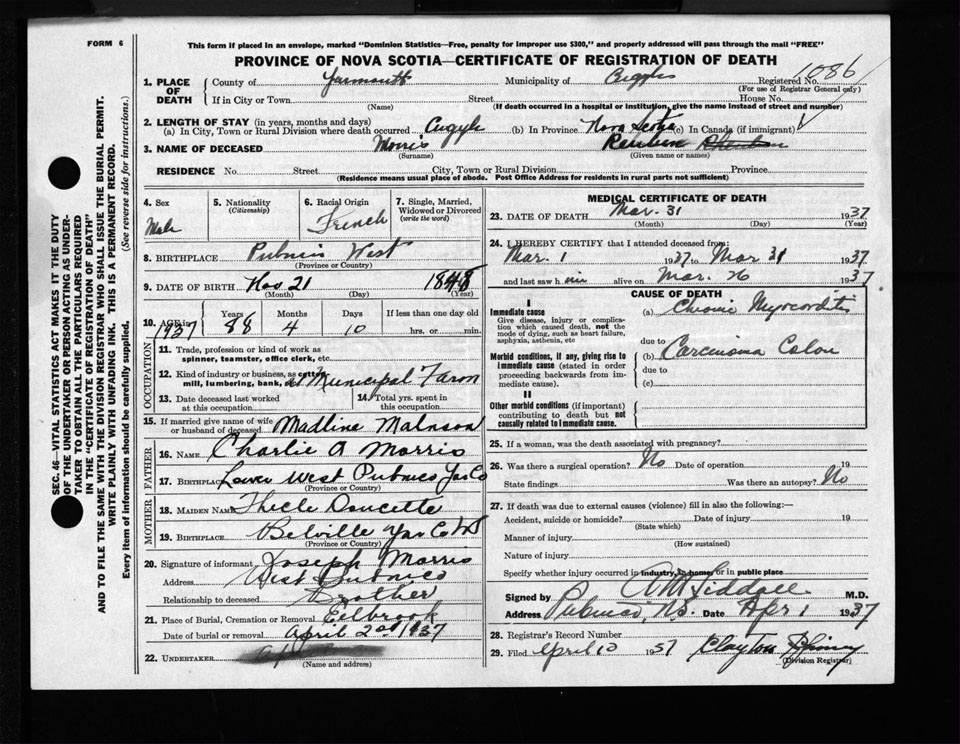 FORM 6
This form if placed in an envelope, marked "Dominion Statistics—Free, penalty for improper use $300," and properly addressed will pass through the mail "FREE"
PROVINCE OF NOVA SCOTIA—CERTIFICATE OF REGISTRATION OF DEATH
SEC. 46—VITAL STATISTICS ACT MAKES IT THE DUTY
OF THE UNDERTAKER OR PERSON ACTING AS UNDER-
TAKER TO OBTAIN ALL THE PARTICULARS REQUIRED
IN THE "CERTIFICATE OF REGISTRATION OF DEATH"
AND TO FILE THE SAME WITH THE DIVISION REGISTRAR WHO SHALL ISSUE THE BURIAL PERMIT.
WRITE PLAINLY WITH UNFADING INK. THIS IS A PERMANENT RECORD.
Every item of information should be carefully supplied. (See reverse side for instructions.)
1. PLACE OF DEATH
County of Yarmouth Municipality of Argyle Registered No. 1086
(For use of Registrar General only)
If in City or Town Street House No.
(Name) (If death occurred in a hospital or institution, give the name instead of street and number)
2. LENGTH OF STAY (in years, months and days)
(a) In City, Town or Rural Division where death occurred Argyle (b) In Province Nova Scotia (c) In Canada (if immigrant)
3. NAME OF DECEASED Morris Reuben
(Surname) (Given name or names)
RESIDENCE No. Street City, Town or Rural Division Province
(Residence means usual place of abode. Post Office Address for residents in rural parts not sufficient)
4. Sex
Male
5. Nationality
(Citizenship)
6. Racial Origin
French
7. Single, Married, Widowed or Divorced
(write the word)
8. BIRTHPLACE Pubnico West
(Province or Country)
9. DATE OF BIRTH Nov 21 1848
(Month) (Day) (Year)
10. AGE in Years Months Days If less than one day old
1937 88 4 10 hrs. or min.
OCCUPATION
11. Trade, profession or kind of work as
spinner, teamster, office clerk, etc.
12. Kind of industry or business, as cotton
mill, lumbering, bank, Municipal Farm
13. Date deceased last worked
at this occupation
14. Total yrs. spent in
this occupation
15. If married give name of wife
or husband of deceased Madline
FATHER
16. Name Charlie A Morris
17. Birthplace Lower West Pubnico Yar Co
(Province or Country)
MOTHER
18. MAIDEN NAME Thecle Doucette
19. BIRTHPLACE Belville Yar Co NS
(Province or Country)
20. Signature of informant Joseph Morris
Address West Pubnico
Relationship to deceased Brother
21. Place of Burial, Cremation or Removal Eelbrook
Date of burial or removal April 2nd 1937
22. UNDERTAKER
(Name and address)
MEDICAL CERTIFICATE OF DEATH
23. DATE OF DEATH Mar. 31 1937
(Month) (Day) (Year)
24. I HEREBY CERTIFY that I attended deceased from:
Mar. 1 1937 to Mar 31 1937
and last saw him alive on Mar. 26 1937
CAUSE OF DEATH
I
Immediate cause
Give disease, injury or complica-
tion which caused death, not the
mode of dying, such as heart failure,
asphyxia, asthenia, etc
(a) Chronic Myocarditis
due to
Morbid conditions, if any, giving rise to
immediate cause (stated in order
proceeding backwards from im-
mediate cause).
(b) Carcinoma Colon
due to
(c)
II
Other morbid conditions (if important)
contributing to death but not
causally related to immediate cause.
25. If a woman, was the death associated with pregnancy?
26. Was there a surgical operation? No Date of operation 19
State findings Was there an autopsy? No
27. If death was due to external causes (violence) fill in also the following:—
Accident, suicide or homicide? Date of injury 19
(State which)
Manner of injury
(How sustained)
Nature of injury
Specify whether injury occurred in industry, in home, or in public place
Signed by M.D.
Address Pubnico, N.S. Date Apr 1 1937
28. Registrar's Record Number
29. Filed April 10 1937 Clayton
(Division Registrar)